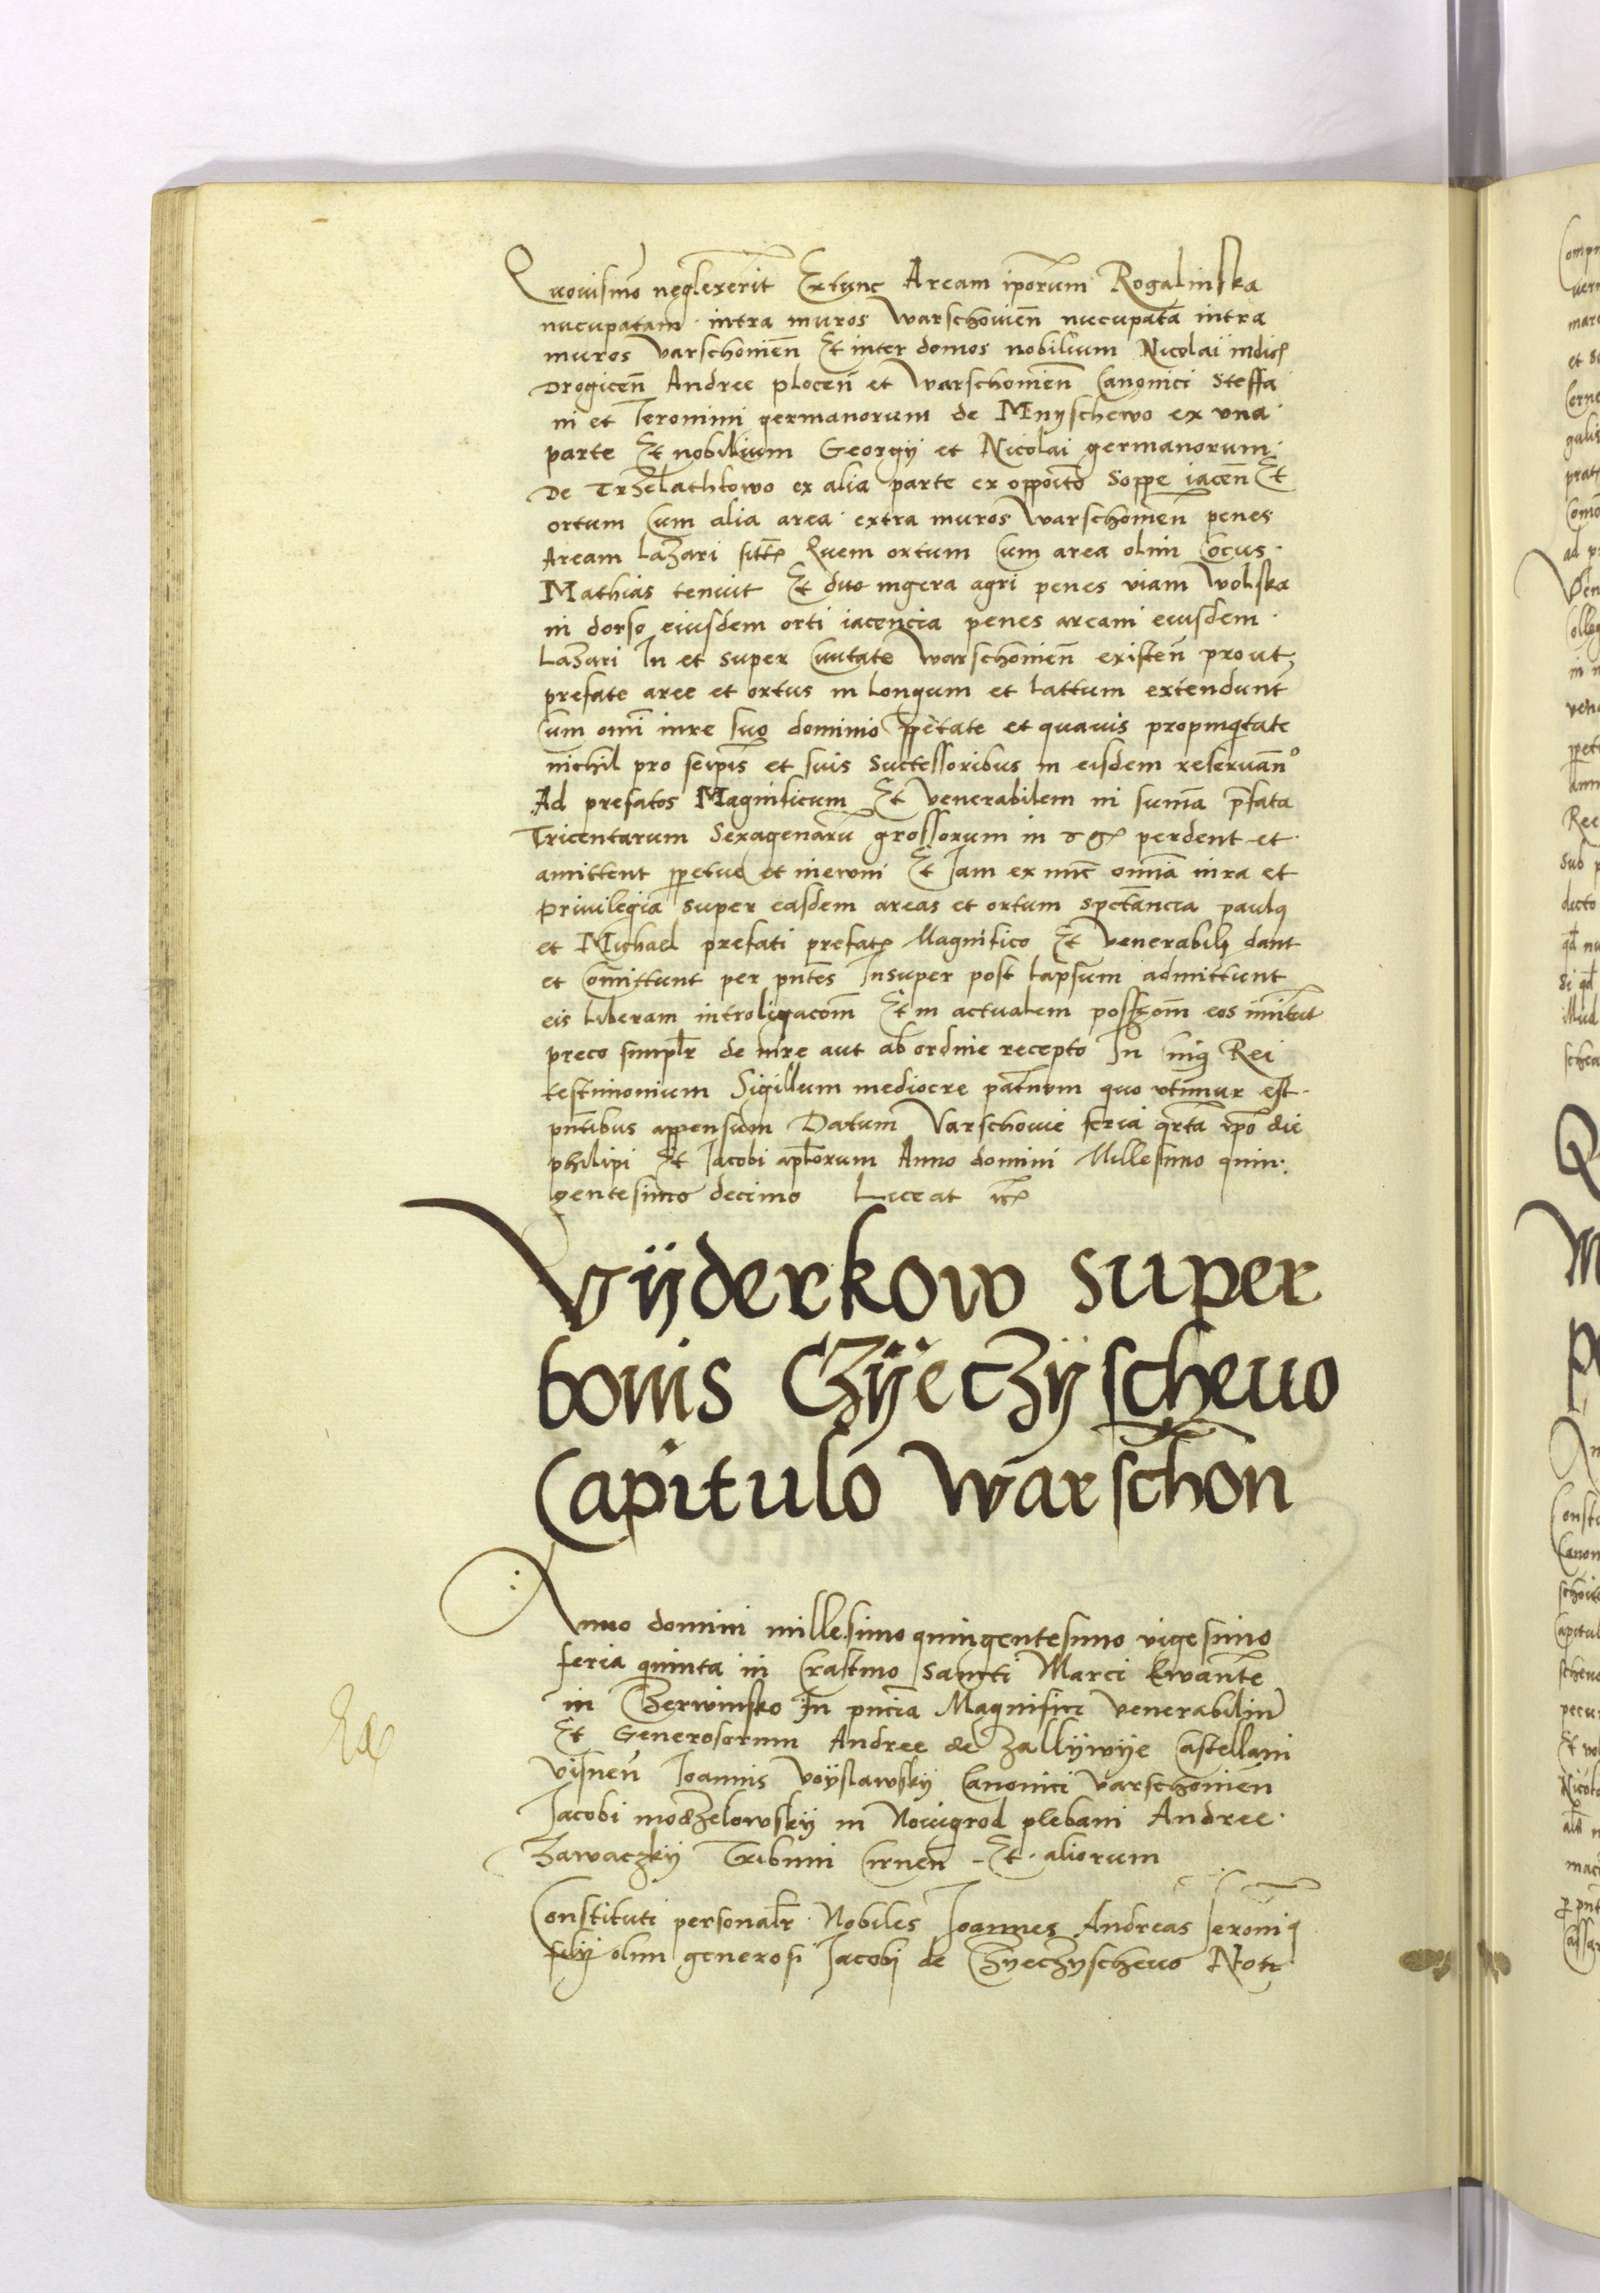 Quouismo neglexerit Extunc Aream iporum Rogalinska
nucupatam intra muros warschouien nucupata intra
muros varschouien Et inter domos nobilium Nicolai iudic
Drogicen Andree plocen et Warschouien Canonici Steffa
ni et Jeronimi germanorum de Mnyschewo ex vna
parte Et nobilium Georgij et Nicolai germanorum
De Trzelathkowo ex alia parte ex opposito Soppe iacen Et
ortum Cum alia area extra muros Warschouien penes
Aream Lazari Quem ortum Cum area olim Cocus
Mathias tenuit Et duo iugera agri penes viam Wolska
in dorso eiusdem orti iacencia penes aream eiusdem
Lazari In et super Ciuitate Warschouien existen prout
prefate aree et ortus in longum et lattum extendunt
Cum omi iure suo dominio ppetate et quauis propinqtate
nichil pro seipis et suis Successoribus in eisdem reseruan
Ad prefatos Magnificum Et venerabilem in suma pfata
Tricentarum Sexagenaru grossorum in perdent et
amittent ppetue et ineuum Et Jam ex nuc omia iura et
Priuilegia super easdem areas et ortum spctancia paulq
et Michael prefati prefat Magnifico Et venerabili dant
et Comittunt per pntes Insuper post lapsum admittunt
eis liberam introligacom Et in actualem possom eos imitut
preco simplr de iure aut ab ordine recepto In cuiq Rei
testimonium Sigillum mediocre patnum quo vtimur est
pntibus appensum Datum Varschouie feria qrta ipo die
philipi Et Jacobi aplorum Anno domini Millesimo quin
gentesimo decimo Liceat etc
Vyderkow super
bonis Czyeczyschewo
Capitulo Warschon
Anno domini millesimo quingentesimo vigesimo
feria quinta in Crastino Sancti Marci Ewante
in Czerwinsko In pncia Magnifici venerabiliu
Et Generosorum Andree de Zallywye Castellani
Visnen Joannis Voyslawsky Canonici varschouien
Jacobi modzelowsky in Nouigrod plebani Andree
Zawaczky Tribuni Cirnen Et aliorum
Ex
Constituti personalr Nobiles Joannes Andreas Jeroniq
filij olim generosi Jacobj de Czyeczyschewo Note